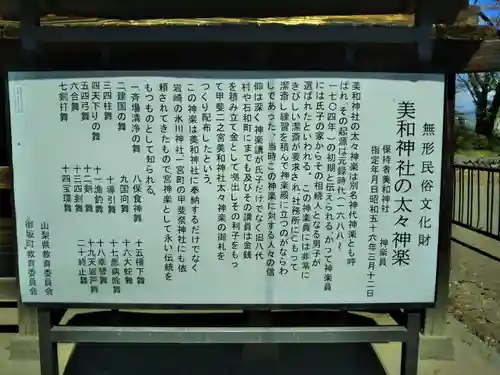 無形民俗文化財
美和神社の太々神楽
保持者美和神社　神楽員
指定年月日昭和五十六年三月十二日
美和神社の太々神楽は別名神代神楽とも呼
ばれ、その起源は元録時代（一六八八〜
一七〇四年）の初期と伝えられる。かって神楽員
には氏子の家からその相続人となる男子が
選ばれたといわれる。この神楽員には非常に
きびしい潔斎が要求され、社務所にこもって
潔斎し練習を積んで神楽殿に立つのがならわ
しであった。当時この神楽に対する人々の信
仰は深く、神楽講が氏子だけでなく旧八代
村や石和町にまでも及びその講員は金銭
を積み立て金として拠出しその利子をもっ
て甲斐二之宮美和神社太々神楽の御札を
つくり配布したという。
この神楽は美和神社に奉納するだけでなく
岩崎の氷川神社、一宮町の甲斐奈神社にも依
頼されて行なったもので宮神楽として永い伝統を
もつものとして知られる。
一斉場清浄の舞
二建国の舞
三四柱舞
四天下りの舞
五四弓舞
六合舞
七剣打舞
八保食神舞
九国向舞
十導引舞
十一漁釣舞
十二剣舞
十三四剣舞
十四宝珠舞
十五種下舞
十六大蛇舞
十七悪病除舞
十八幸替舞
十九天岩戸舞
二十終止舞
山梨県教育委員会
御坂町教育委員会